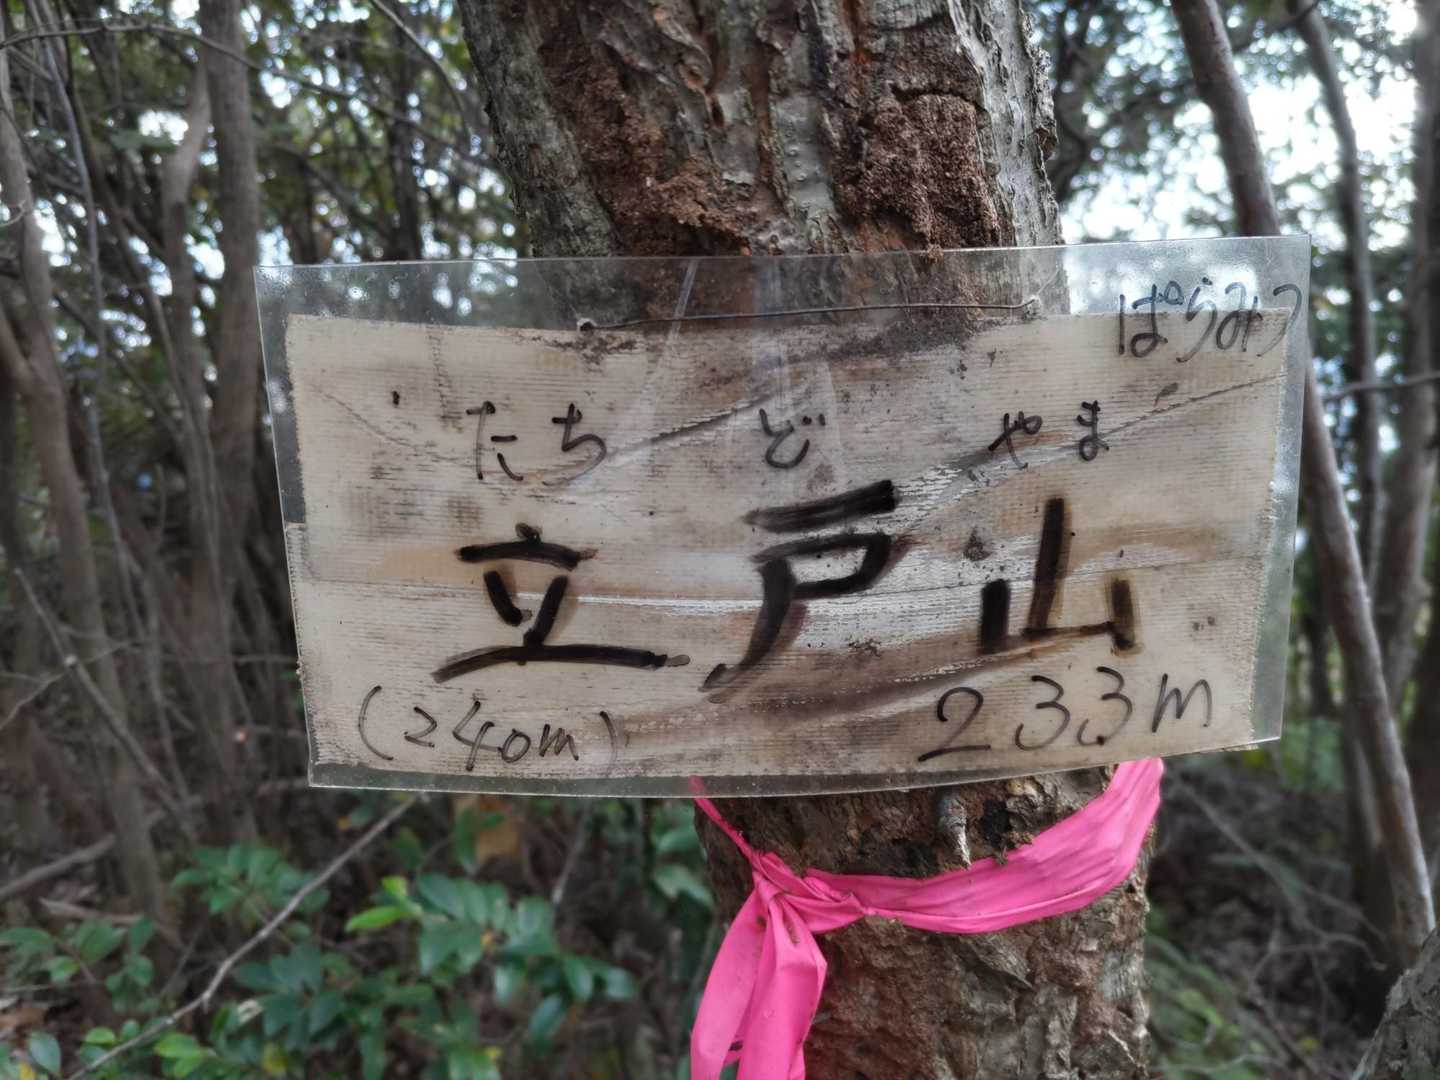 ぱらみつ
たちどやま
立戸山
(240m) 233m